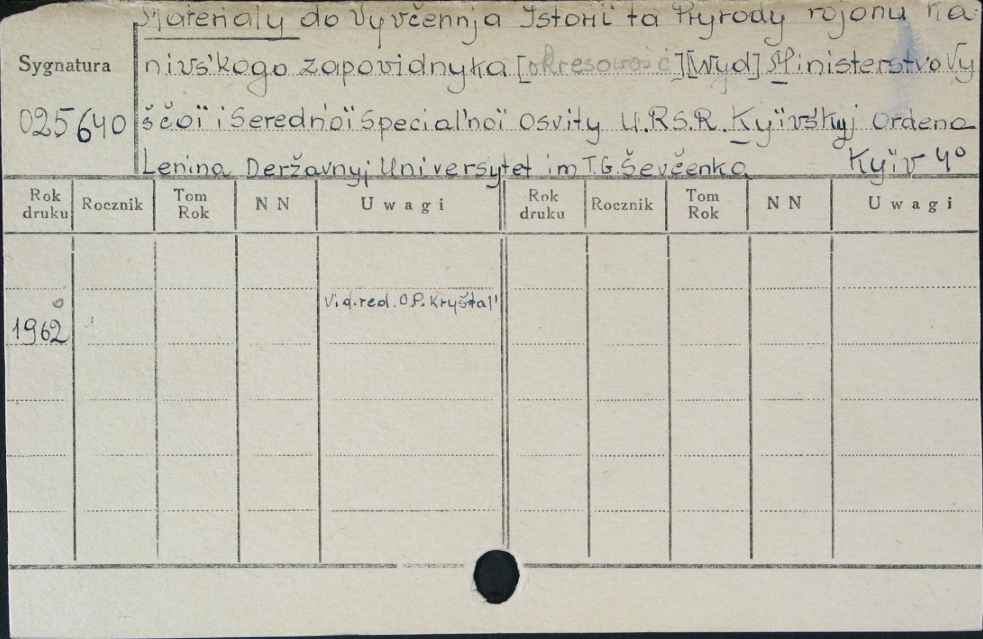 Materialy do Vyvčennja Istoriï ta Pryrody rojonu Ka-
nivs'kogo zapovidnyka [okresowość] [Wyd] Ministerstvo Vy
Sygnatura
ščoï i Seredn'oï Special'noï Osvity U.R.S.R. Kyïvs'kyj Ordena
025640
Lenina Deržavnyj Universytet im T.G. Ševčenka Kyïv 4°
Rok druku Rocznik Tom Rok NN Uwagi Rok druku Rocznik Tom Rok NN Uwagi
o Vid.red. O.P. Kryštal'
1962